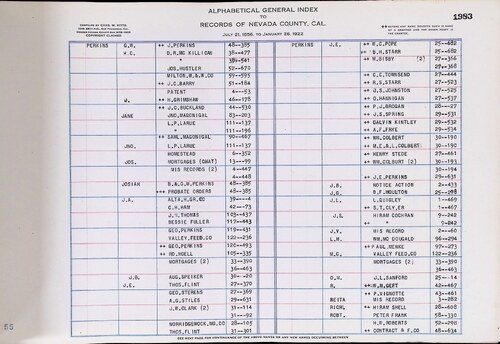 ALPHABETICAL GENERAL INDEX
TO
RECORDS OF NEVADA COUNTY, CAL.
JULY 21, 1856, TO JANUARY 26, 1922
1983
PERKINS G.W. ++ J.PERKINS 48--395
H.C. D.R.MC KILLICAN 38--477
" 38--541
JOS.HUSTLER 52--670
MILTON,M.& M.CO 59--595
++ J.C.BARRY 51--184
PATENT 4--53
M. ++ M.GRIMSHAW 46--178
++ J.C.BUCKLAND 44--530
JANE JNO.MAGONIGAL 83--203
L.P.LARUE 111--137
" 111--196
++ EARL.MAGONIGAL 90--667
JNO. L.P.LARUE 111--137
HOMESTEAD 6--352
JOS. MORTGAGES (CHAT) 13--99
MIS RECORDS (2) 4--447
4--448
JOSIAH B.& G.W.PERKINS 48--385
+++ PROBATE ORDERS 48--385
J.A. ALTA.H.GM.CO 39---4
C.H.HAM 42--73
J.H.THOMAS 103--437
BESSIE FULLER 117--443
GEO.PERKINS 119--431
VALLEY.FEED.CO 122--236
++ GEO.PERKINS 120--493
++ RO.NOELL 105--335
MORTGAGES (2) 33--390
36--463
J.B. AUG.SPEIKER 30--20
J.E. THOS.FLINT 27--370
GEO.STEVENS 27--369
A.G.STILES 29--631
J.W.CLARK (2) 31--114
31--92
NORRIDGEWOCK,MG.CO 28--105
THOS.FLINT 31--301
PERKINS J.E. ++ W.C.POPE 25--682
++ B.H.STARR 25--682
++ M.BIGBY (2) 27--366
27--368
++ C.C.TOWNSEND 27--444
++ R.H.STARR 27--523
++ U.S.JOHNSTON 27--525
++ D.HANNIGAN 27--537
++ P.J.BROGAN 28--27
++ J.B.SPRING 29--531
++ DALVIN KINTLEY 29--532
++ A.F.FRYE 29--534
++ WM.COLBERT 30--190
++ M.E.& L.COLBERT 30--190
++ HENRY STEDE 29--461
++ WM.COLBURT (2) 30--193
30--194
++ J.E.PERKINS 29--631
J.H. NOTICE ACTION 2--433
J.G. R.F.MOULTON 25--298
J.L. L.QUIGLEY 1--469
++ S.T.CLY,ER 1--467
J.S. HIRAM COCHRAN 9--242
++ " 9--242
J.V. HIS RECORD 2--60
L.M. WM.MC DOUGALD 96--294
++ PAUL.MENKE 97--273
M.C. VALLEY FEED.CO 122--236
MORTGAGES (2) 33--390
36--463
O.H. J.L.SANFORD 25--14
R. ++ W.M.GERT 42--467
++ F.VIGNOTTE 43--461
REITA MIS RECORD 3--282
RICH. ++ HIRAM SHELL 28--608
ROBT. PETER FRANK 58--330
H.R.ROBERTS 52--298
++ CONTRACT A F.CO 48--634
SEE NEXT PAGE FOR CONTINUANCE OF THE ABOVE NAMES OR ANY NEW NAMES OCCURRING BETWEEN